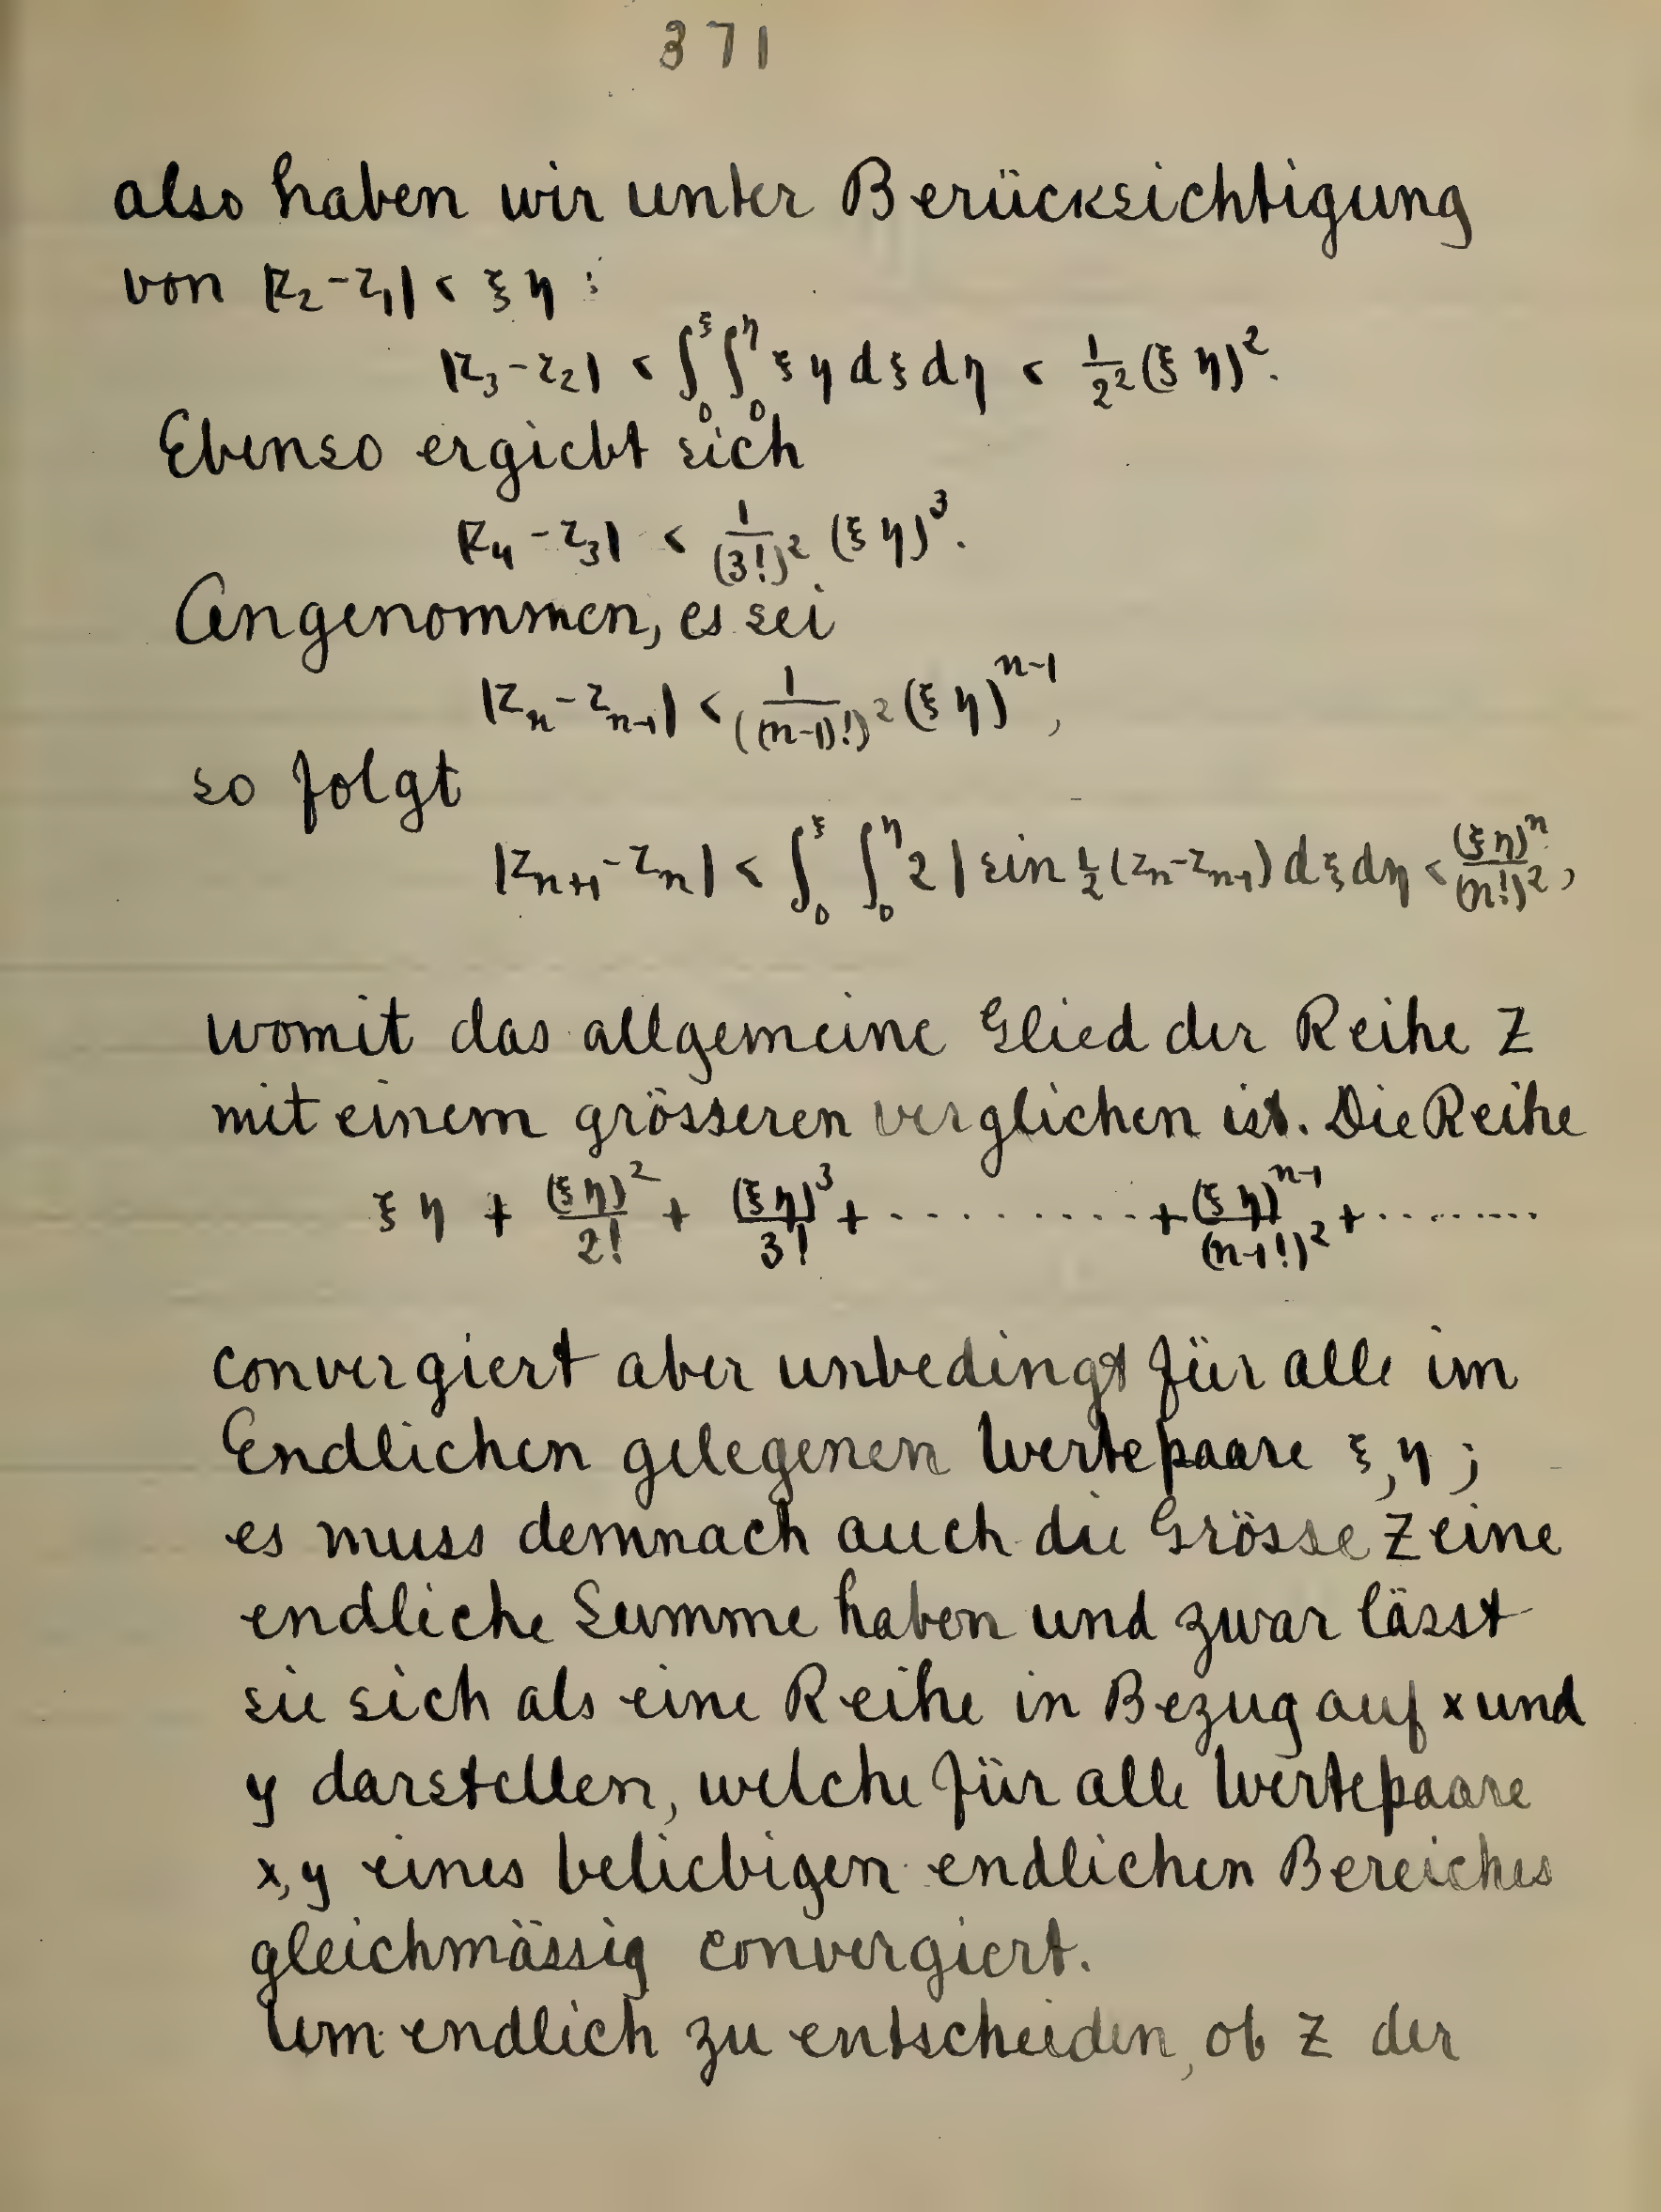 371
also haben wir unter Berücksichtigung
von |z₂-z₁| < ξ η :
|z₃-z₂| < ∫₀^ξ ∫₀^η ξ η dξ dη < 1/2² (ξ η)².
Ebenso ergiebt sich
|z₄-z₃| < 1/(3!)² (ξ η)³.
Angenommen, es sei
|z_n - z_{n-1}| < 1/((n-1)!)² (ξ η)^{n-1},
so folgt
|z_{n+1} - z_n| < ∫₀^ξ ∫₀^η 2 | sin ½ (z_n - z_{n-1}) dξ dη < (ξ η)^n/(n!)²,
womit das allgemeine Glied der Reihe z
mit einem grösseren verglichen ist. Die Reihe
ξ η + (ξ η)²/2! + (ξ η)³/3! + .......... + (ξ η)^{n-1}/(n-1!)² + ........
convergiert aber unbedingt für alle im
Endlichen gelegenen Wertepaare ξ, η ;
es muss demnach auch die Grösse z eine
endliche Summe haben und zwar lässt
sie sich als eine Reihe in Bezug auf x und
y darstellen, welche für alle Wertepaare
x, y eines beliebigen endlichen Bereiches
gleichmässig convergiert.
Um endlich zu entscheiden, ob z der